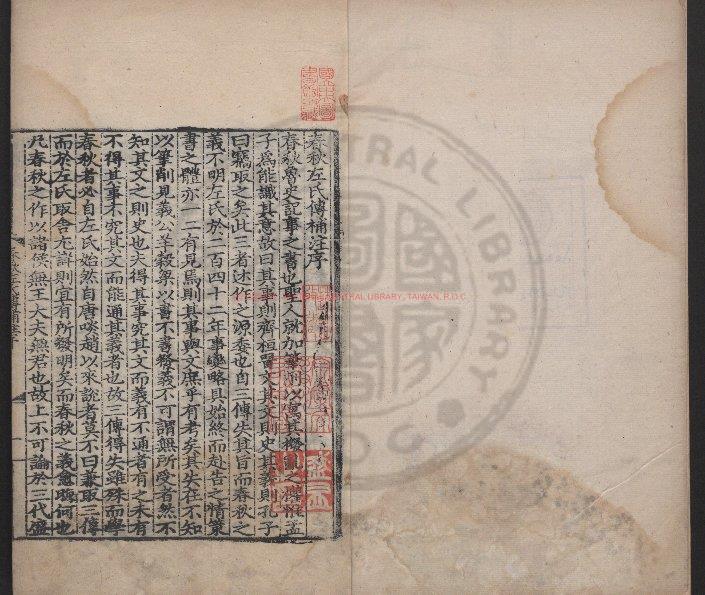 春秋左氏傳補注序
春秋魯史記事之書也聖人就加筆削以寓其撥亂之權惟孟
子為能識其意故曰其事則齊桓晉文其文則史其義則孔子
曰竊取之矣此三者述作之源委也自三傳失其旨而春秋之
義不明左氏於二百四十二年事變略具始終而赴告之情策
書之體亦一二有見焉則其事與文庶乎有考矣其失在不知
以筆削見義公羊穀梁以書不書發義不可謂無所受者然不
知其文之則史也夫得其事究其文而義有不通者有之未有
不得其事不究其文而能通其義者也故三傳得失雖殊而學
春秋者必自左氏始然自唐啖趙以來說者莫不曰兼取三傳
而於左氏取舍尤詳則宜有所發明矣而春秋之義愈晦何也
凡春秋之作以諸侯無王大夫無君也故上不可論於三代盛
CENTRAL LIBRARY, TAIWAN, R.O.C
CENTRAL LIBRARY